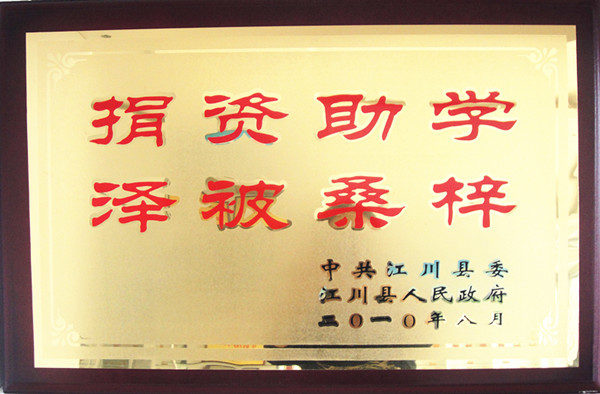 捐资助学
泽被桑梓
中共江川县委
江川县人民政府
二〇一〇年八月